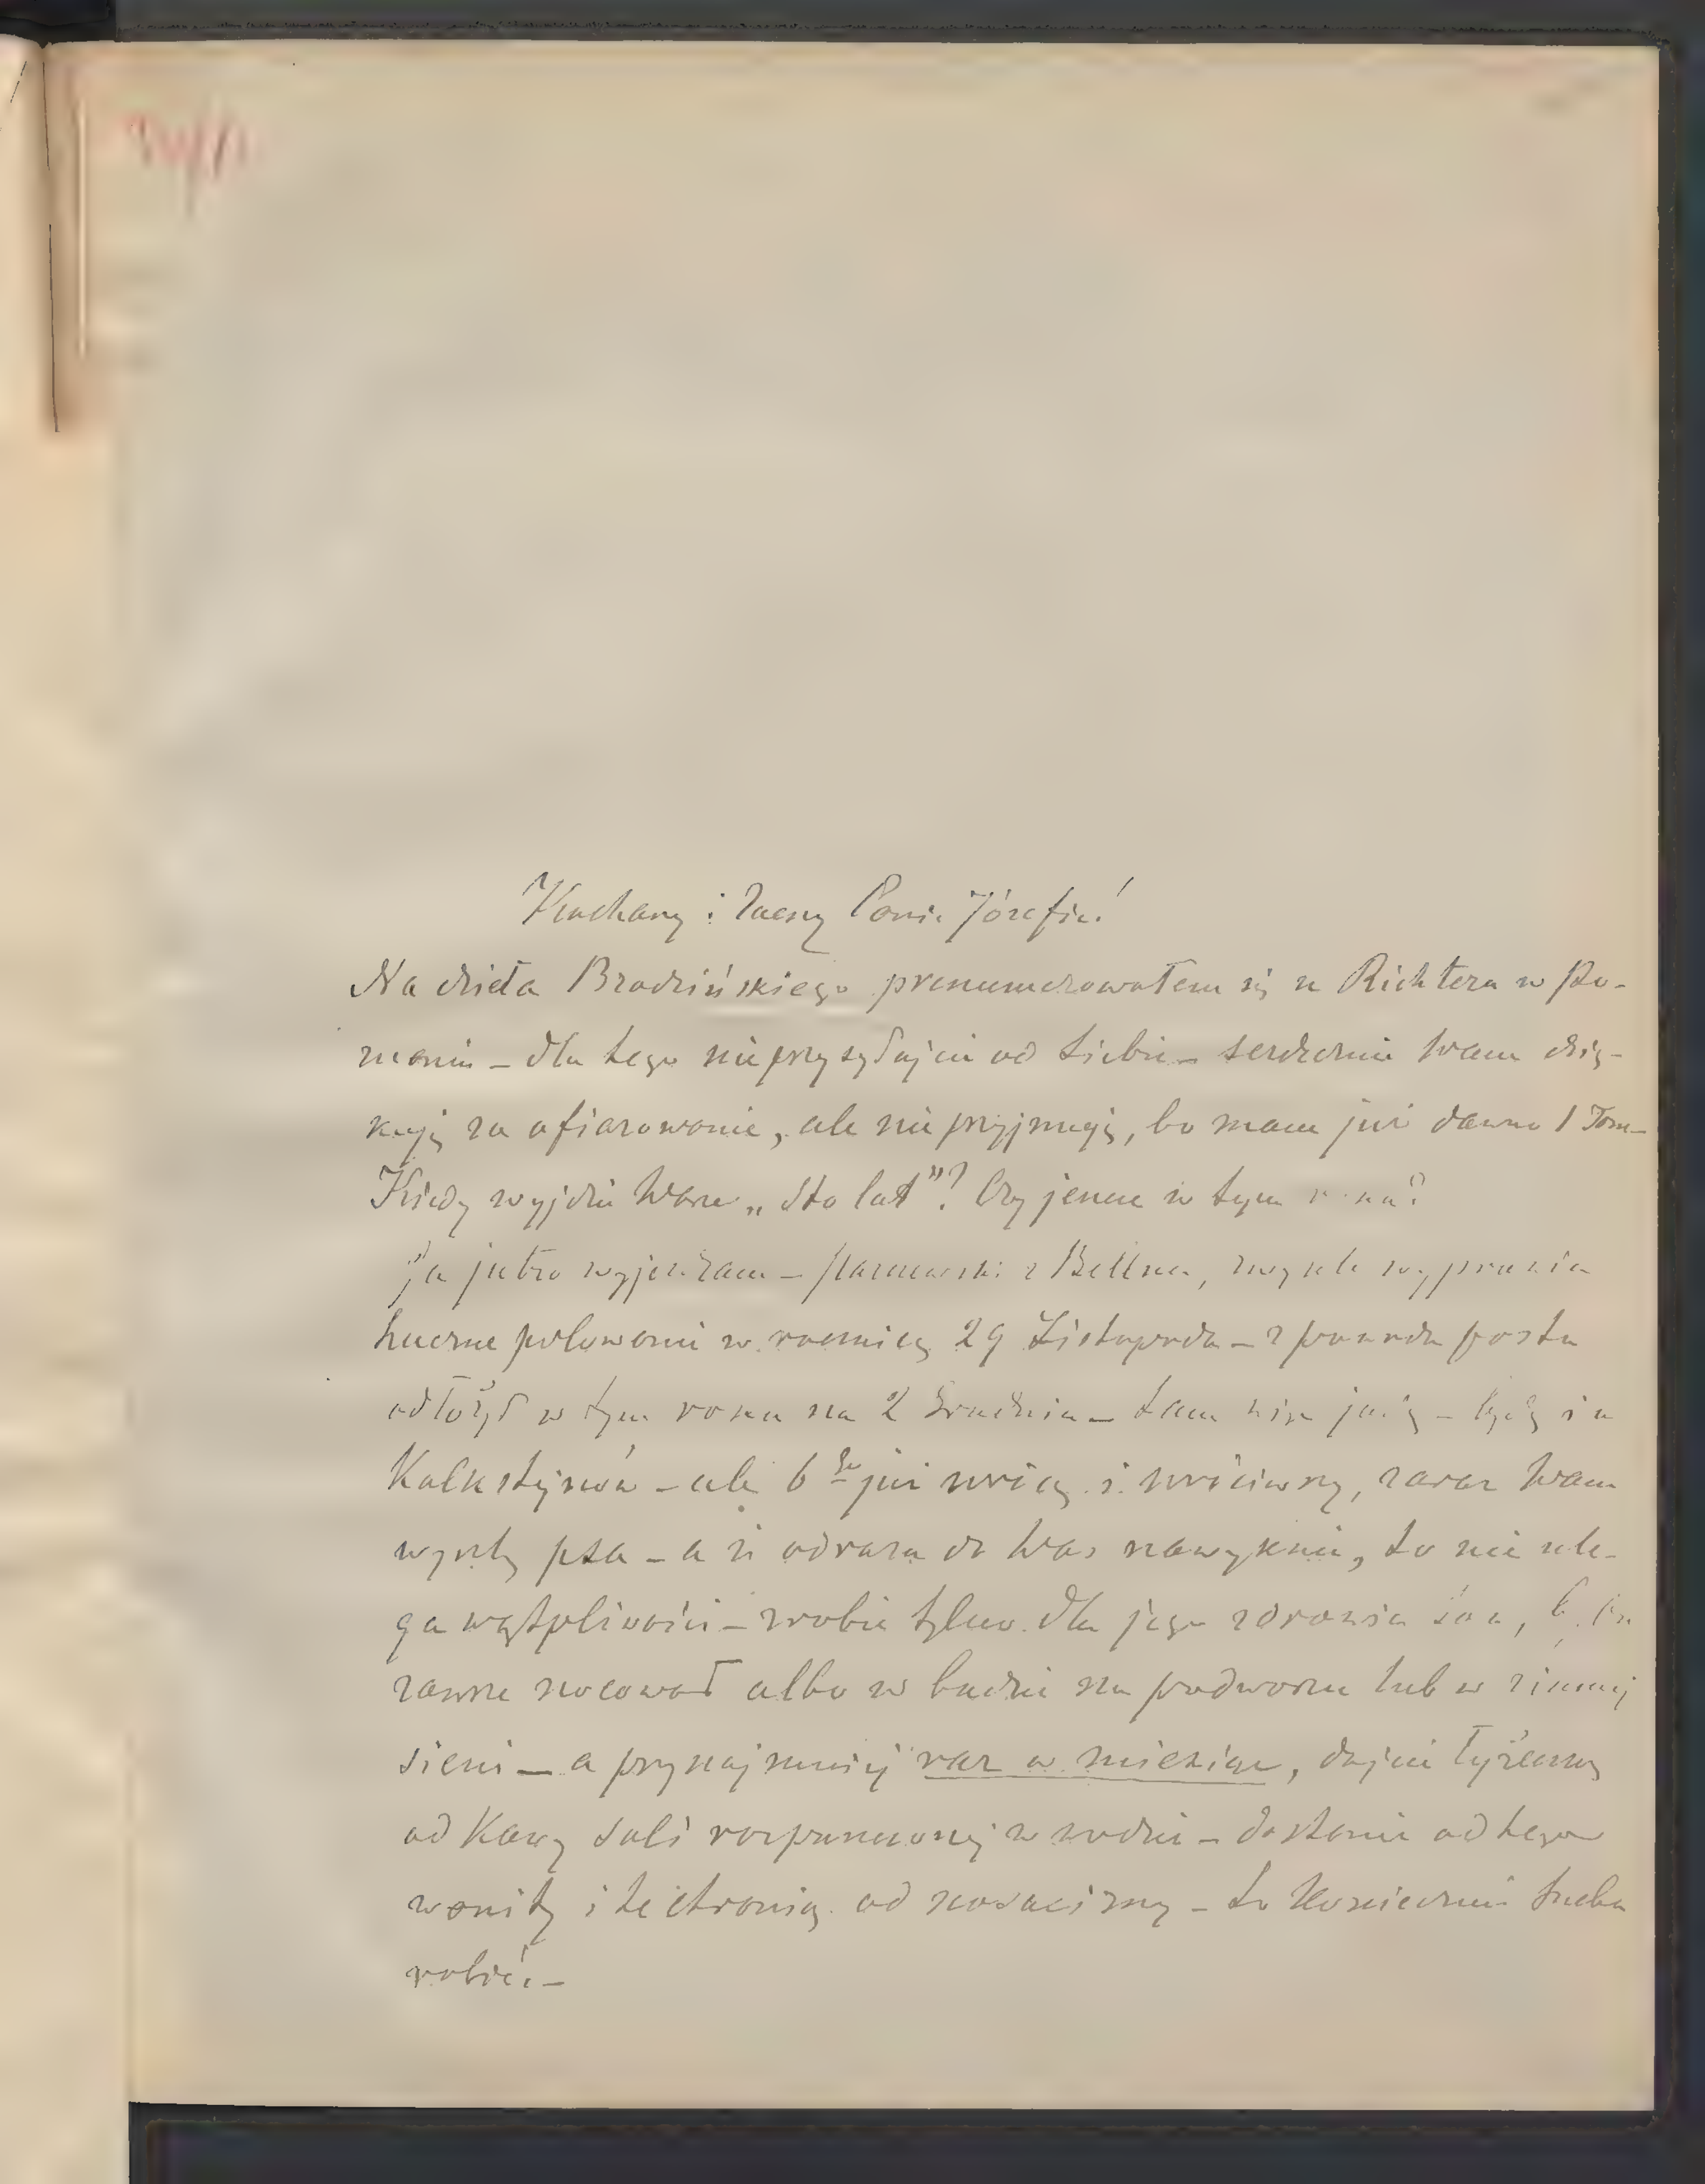 Kochany i Zacny Panie Józefie!
Na dzieła Brodzińskiego prenumerowałem się u Richtera w Po-
znaniu – dla tego nie przysyłajcie od Siebie – serdecznie Wam dzię-
kuję za ofiarowanie, ale nie przyjmuję, bo mam już dawno 1 Tom –
Kiedy wyjdzie Wasze „Sto lat”? Czy jeszcze w tym roku?
Ja jutro wyjeżdżam – z Bellna, zwykle wyprawia
huczne polowanie w rocznicę 29 Listopada – z powodu postu
odłożył w tym roku na 2 Grudnia – tam więc jadę – będę i u
Kalkstejnów – ale 6go już wrócę i wróciwszy, zaraz Wam
wyszlę psa – a że odrazu do Was nawyknie, to nie ule-
ga wątpliwości – zróbcie tylko dla jego zdrowia to, by
zawsze nocował albo w budzie na podworzu lub w zimnej
sieni – a przynajmniej raz w miesiąc, dajcie łyżeczkę
od Kawy soli rozpuszczonej w wodzie – dostanie od tego
womity i te chronią od nosacizny – to Koniecznie trzeba
robić. –